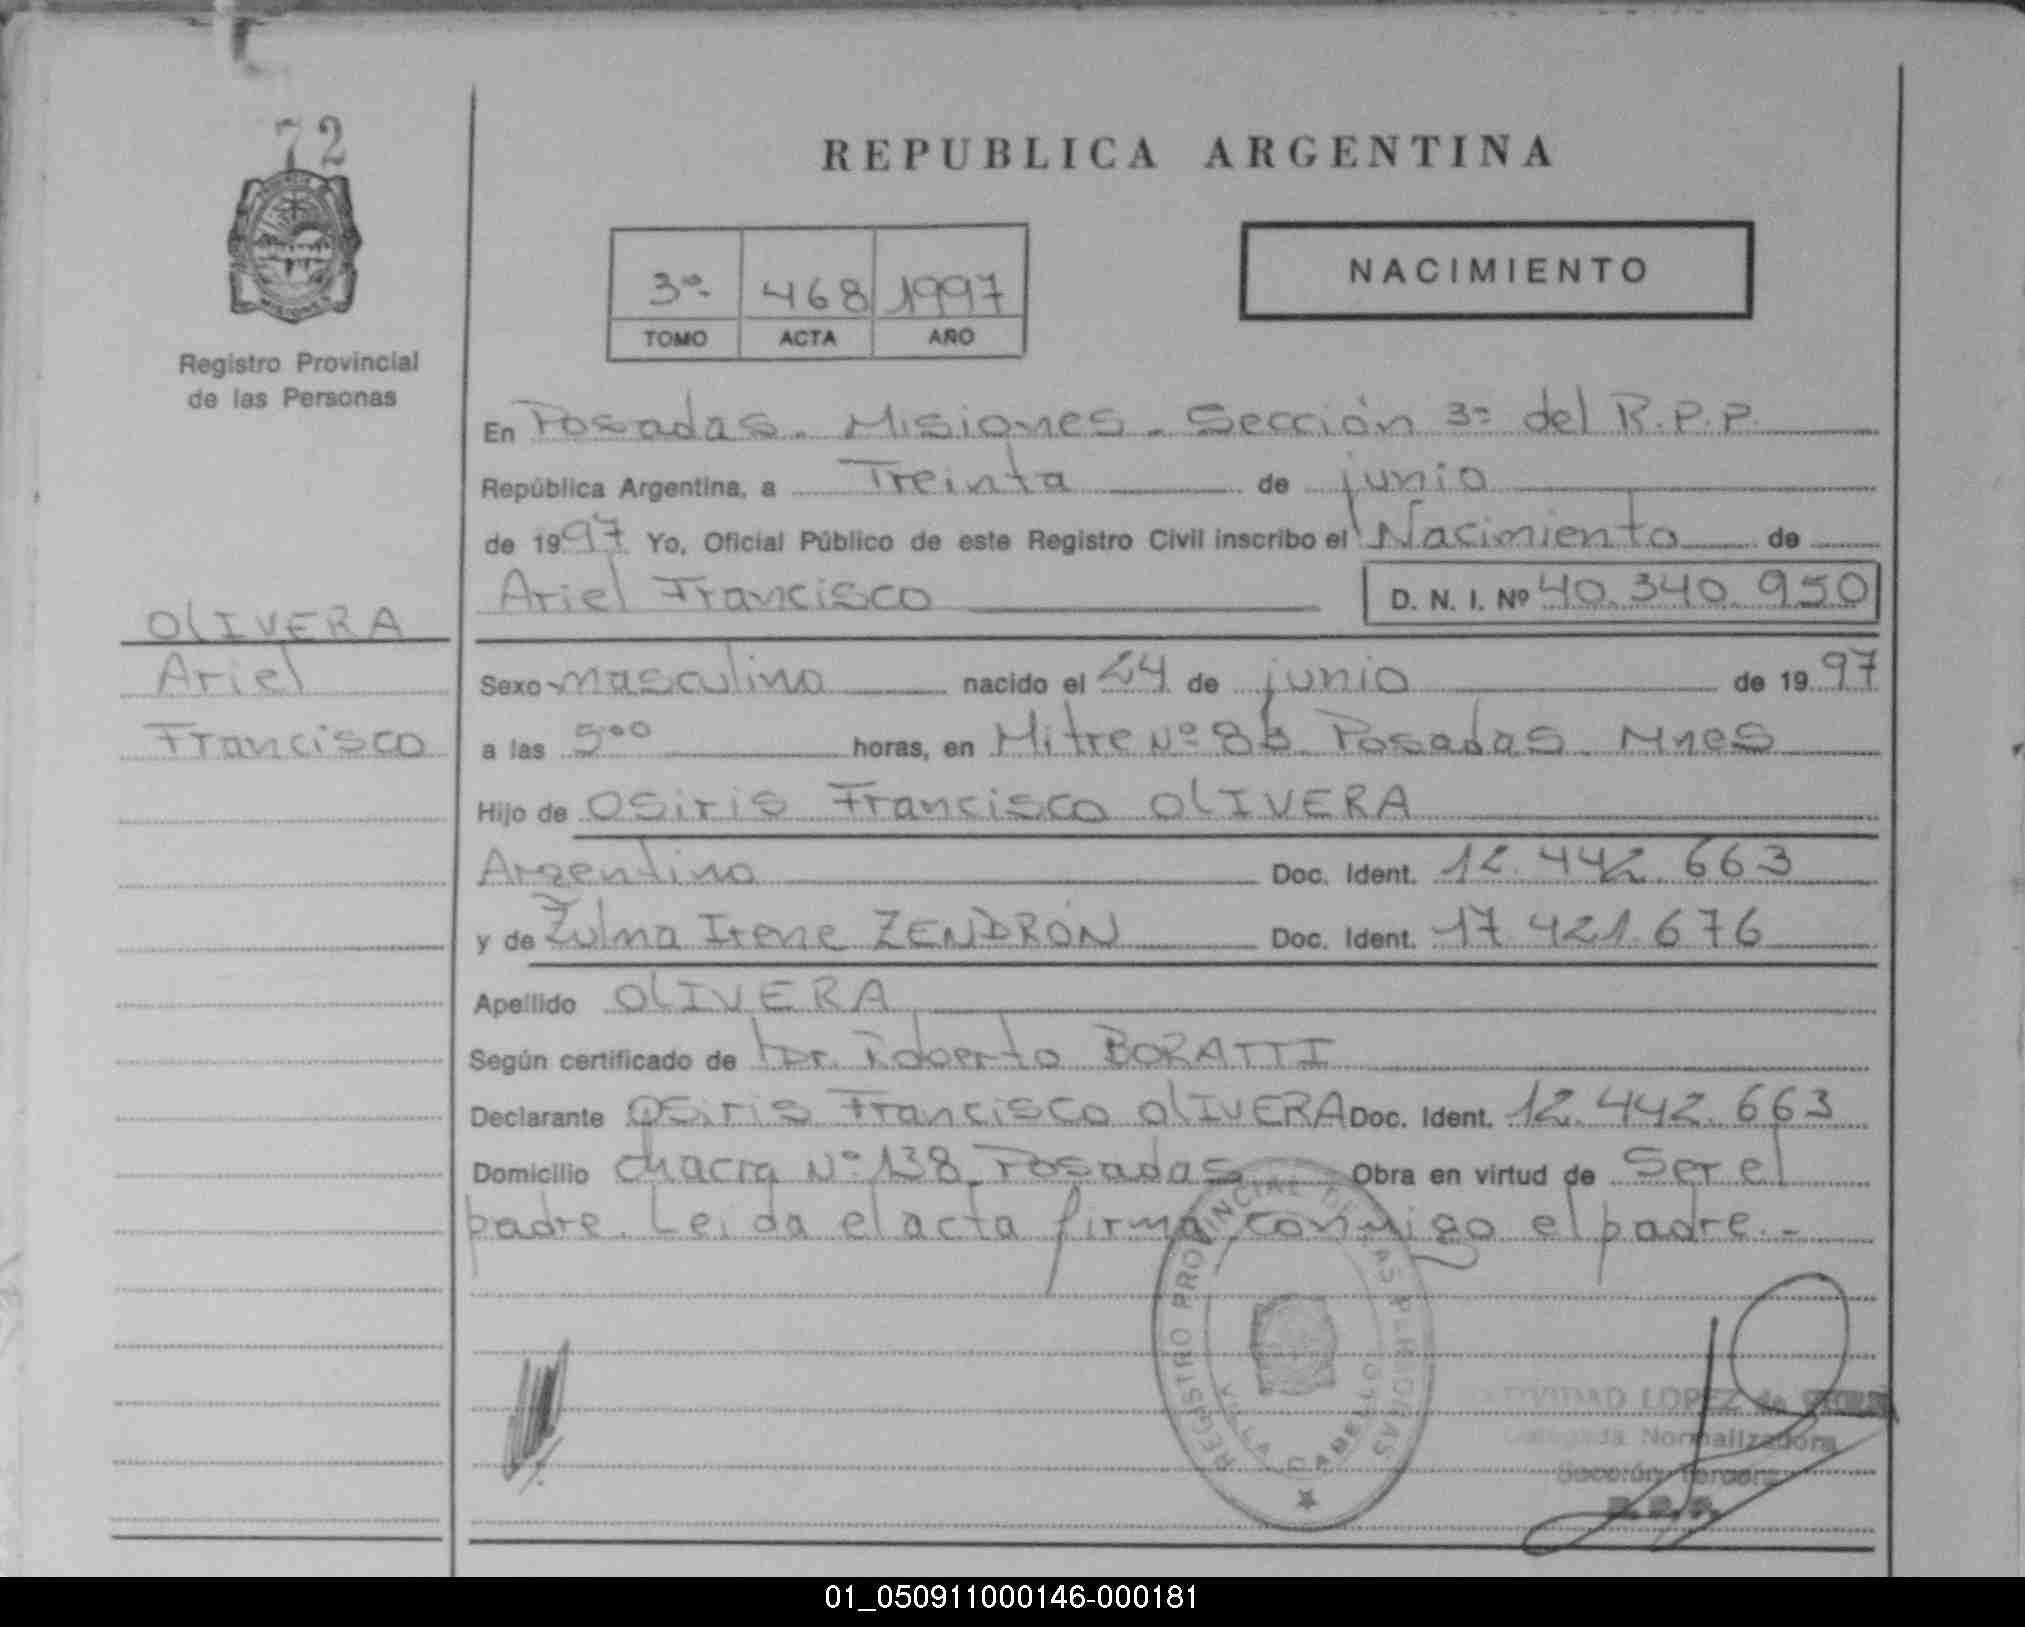 72
REPUBLICA ARGENTINA
NACIMIENTO
3ª- 468 1997
TOMO ACTA AÑO
Registro Provincial
de las Personas
En Posadas. Misiones - Sección 3ª del R.P.P.
República Argentina, a Treinta de junio
de 1997 Yo, Oficial Público de este Registro Civil inscribo el Nacimiento de
Ariel Francisco D. N. I. Nº 40.340.950
OLIVERA
Ariel
Francisco
Sexo masculino nacido el 24 de junio de 1997
a las 5⁰⁰ horas, en Mitre Nº Posadas Mnes
Hijo de Osiris Francisco OLIVERA
Argentino Doc. Ident. 12.442.663
y de Zulma Irene ZENDRON Doc. Ident. 17.421.676
Apellido OLIVERA
Según certificado de Dr. Roberto BORATTI
Declarante Osiris Francisco OLIVERA Doc. Ident. 12.442.663
Domicilio chacra Nº 138 Posadas Obra en virtud de Ser el
padre. Leida el acta firma conmigo el padre.-
REGISTRO PROVINCIAL DE LAS PERSONAS
VILLA CABELLO
LOPEZ de
Delegada Normalizadora
Sección Tercera
R.P.P.
01_050911000146-000181